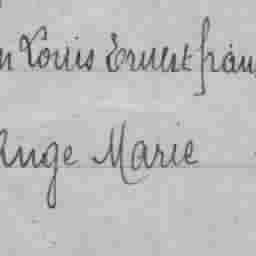 n Louis Ernest fran
Ange Marie